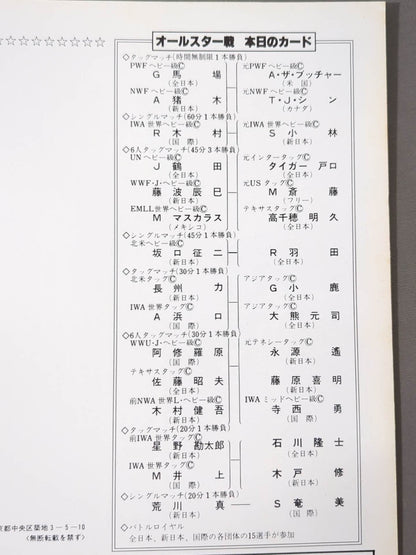 オールスター戦 本日のカード
◇タッグマッチ(時間無制限1本勝負)
PWFヘビー級Ⓒ 元PWFヘビー級Ⓒ
G馬場 A・ザ・ブッチャー
(全日本) (米国)
NWFヘビー級Ⓒ 元NWFヘビー級Ⓒ
A猪木 T・J・シン
(新日本) (カナダ)
◇シングルマッチ(60分1本勝負)
IWA世界ヘビー級Ⓒ 元IWA世界ヘビー級Ⓒ
R木村 S小林
(国際) (新日本)
◇6人タッグマッチ(45分3本勝負)
UNヘビー級Ⓒ 元インタータッグⒸ
J鶴田 タイガー戸口
(全日本) (全日本)
WWF・J・ヘビー級Ⓒ 元USタッグⒸ
藤波辰巳 M斎藤
(新日本) (フリー)
EMLL世界ヘビー級Ⓒ テキサスタッグⒸ
M マスカラス 高千穂明久
(メキシコ) (全日本)
◇シングルマッチ(45分1本勝負)
北米ヘビー級Ⓒ
坂口征二 R羽田
(新日本) (全日本)
◇タッグマッチ(30分1本勝負)
北米タッグⒸ アジアタッグⒸ
長州力 G小鹿
(新日本) (全日本)
IWA世界タッグⒸ アジアタッグⒸ
A浜口 大熊元司
(国際) (全日本)
◇6人タッグマッチ(30分1本勝負)
WWU・J・ヘビー級Ⓒ 元テネシータッグⒸ
阿修羅原 永源遙
(国際) (新日本)
テキサスタッグⒸ
佐藤昭夫 藤原喜明
(全日本) (新日本)
前NWA世界L・ヘビー級Ⓒ IWAミッドヘビー級Ⓒ
木村健吾 寺西勇
(新日本) (国際)
◇タッグマッチ(20分1本勝負)
前IWA世界タッグⒸ
星野勘太郎 石川隆士
(新日本) (全日本)
IWA世界タッグⒸ
M井上 木戸修
(国際) (新日本)
◇シングルマッチ(20分1本勝負)
荒川真 S奄美
(新日本) (国際)
◇バトルロイヤル
全日本、新日本、国際の各団体の15選手が参加
京都中央区築地3-5-10
〈無断転載を禁す〉